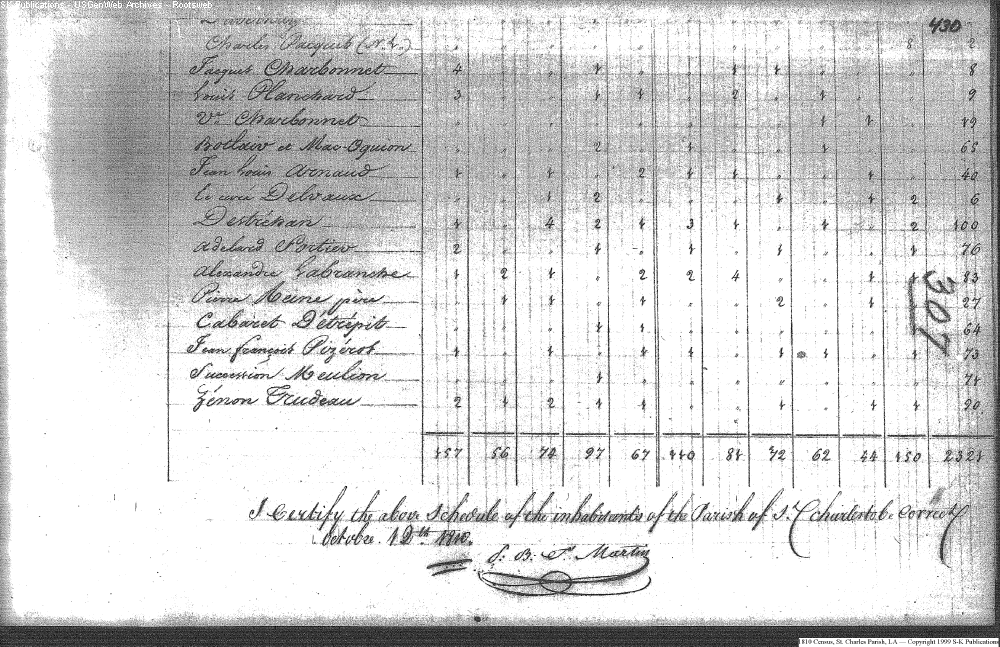 S-K Publications - USGenWeb Archives - Rootsweb
430
Charles Pacquet (N.L.) . . . . . . . . . . 8 2
Jacques Charbonnet 4 . . 1 . . 1 1 . . . 8
Louis Planchard 3 . . 1 1 . 2 . 1 . . 9
Vve Charbonnet . . . . . . . . 1 1 . 19
et Mac-Oguion . . . 2 . 1 . . 1 . . 65
Jean Louis Arnaud 1 . 1 . 2 1 1 . . 1 . 40
Le curé Delvaux . . 1 2 . . . 1 . 1 2 6
Destréhan 1 . 4 2 1 3 1 . 1 . 2 100
Adelard Fortier 2 . . 1 . 1 . 1 . . 1 76
Alexandre Labranche 1 2 1 . 2 2 4 . . 1 1 83
Pierre Reine père . 1 1 . 1 . . 2 . 1 . 27
Cabaret D'étrépit . . . 1 1 . . . . . . 64
Jean françois Pizérot 1 . 1 . 1 1 . 1 1 . 1 73
Succession Meulion . . . 1 . . . . . . . 71
Zénon Trudeau 2 1 2 1 1 . . 1 . 1 1 90
307
157 56 74 97 67 110 81 72 62 44 150 2321
I Certify the above Schedule of the inhabitants of the Parish of St. Charles to be Correct
Octobre 1810.
J. B. St Martin
1810 Census, St. Charles Parish, LA — Copyright 1999 S-K Publications